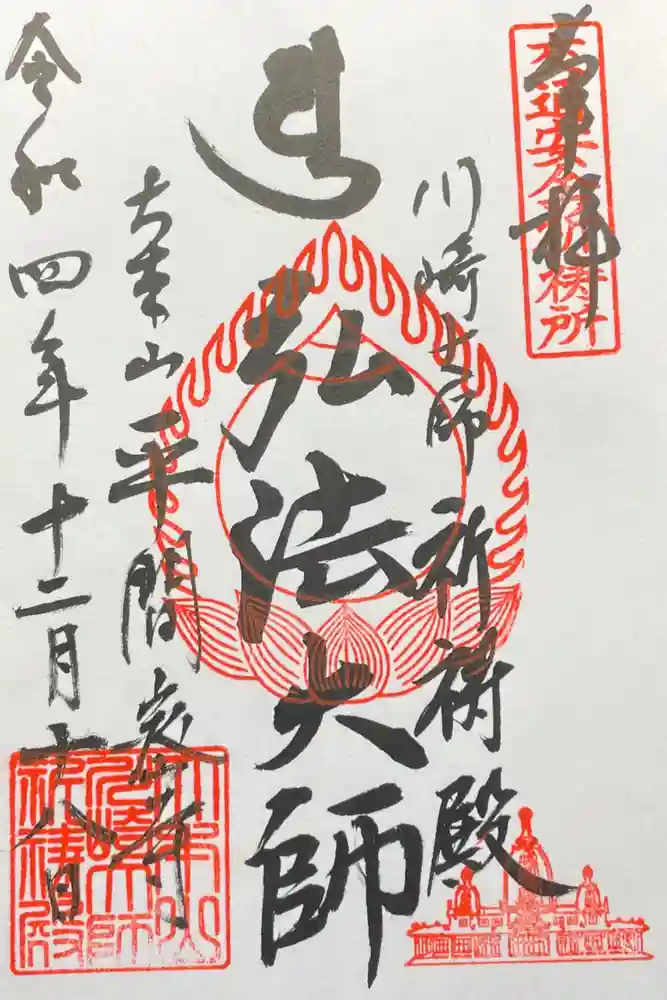 奉拝
交通安全祈祷所
川崎大師 祈祷殿
弘法大師
大本山 平間寺
令和四年十二月十八日